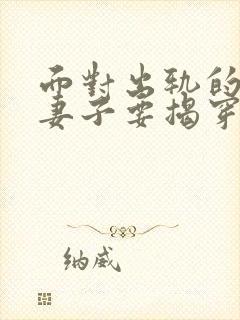 面對出軌的
妻子要揭穿
纳威